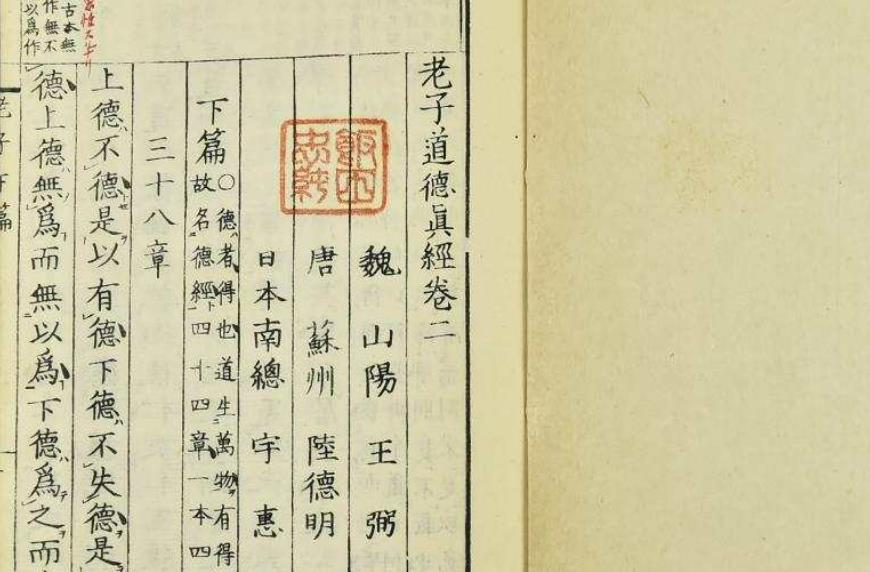 老子道德眞經卷二
魏 山陽 王 弼
唐 蘇州 陸德明
日本南總 宇 惠
下篇○德者得也道生萬物有得
故名德經四十四章一本四
三十八章
古本無
作無不
以爲作
上德不德是以有德下德不失德是
德上德無爲而無以爲下德爲之而
老子下篇